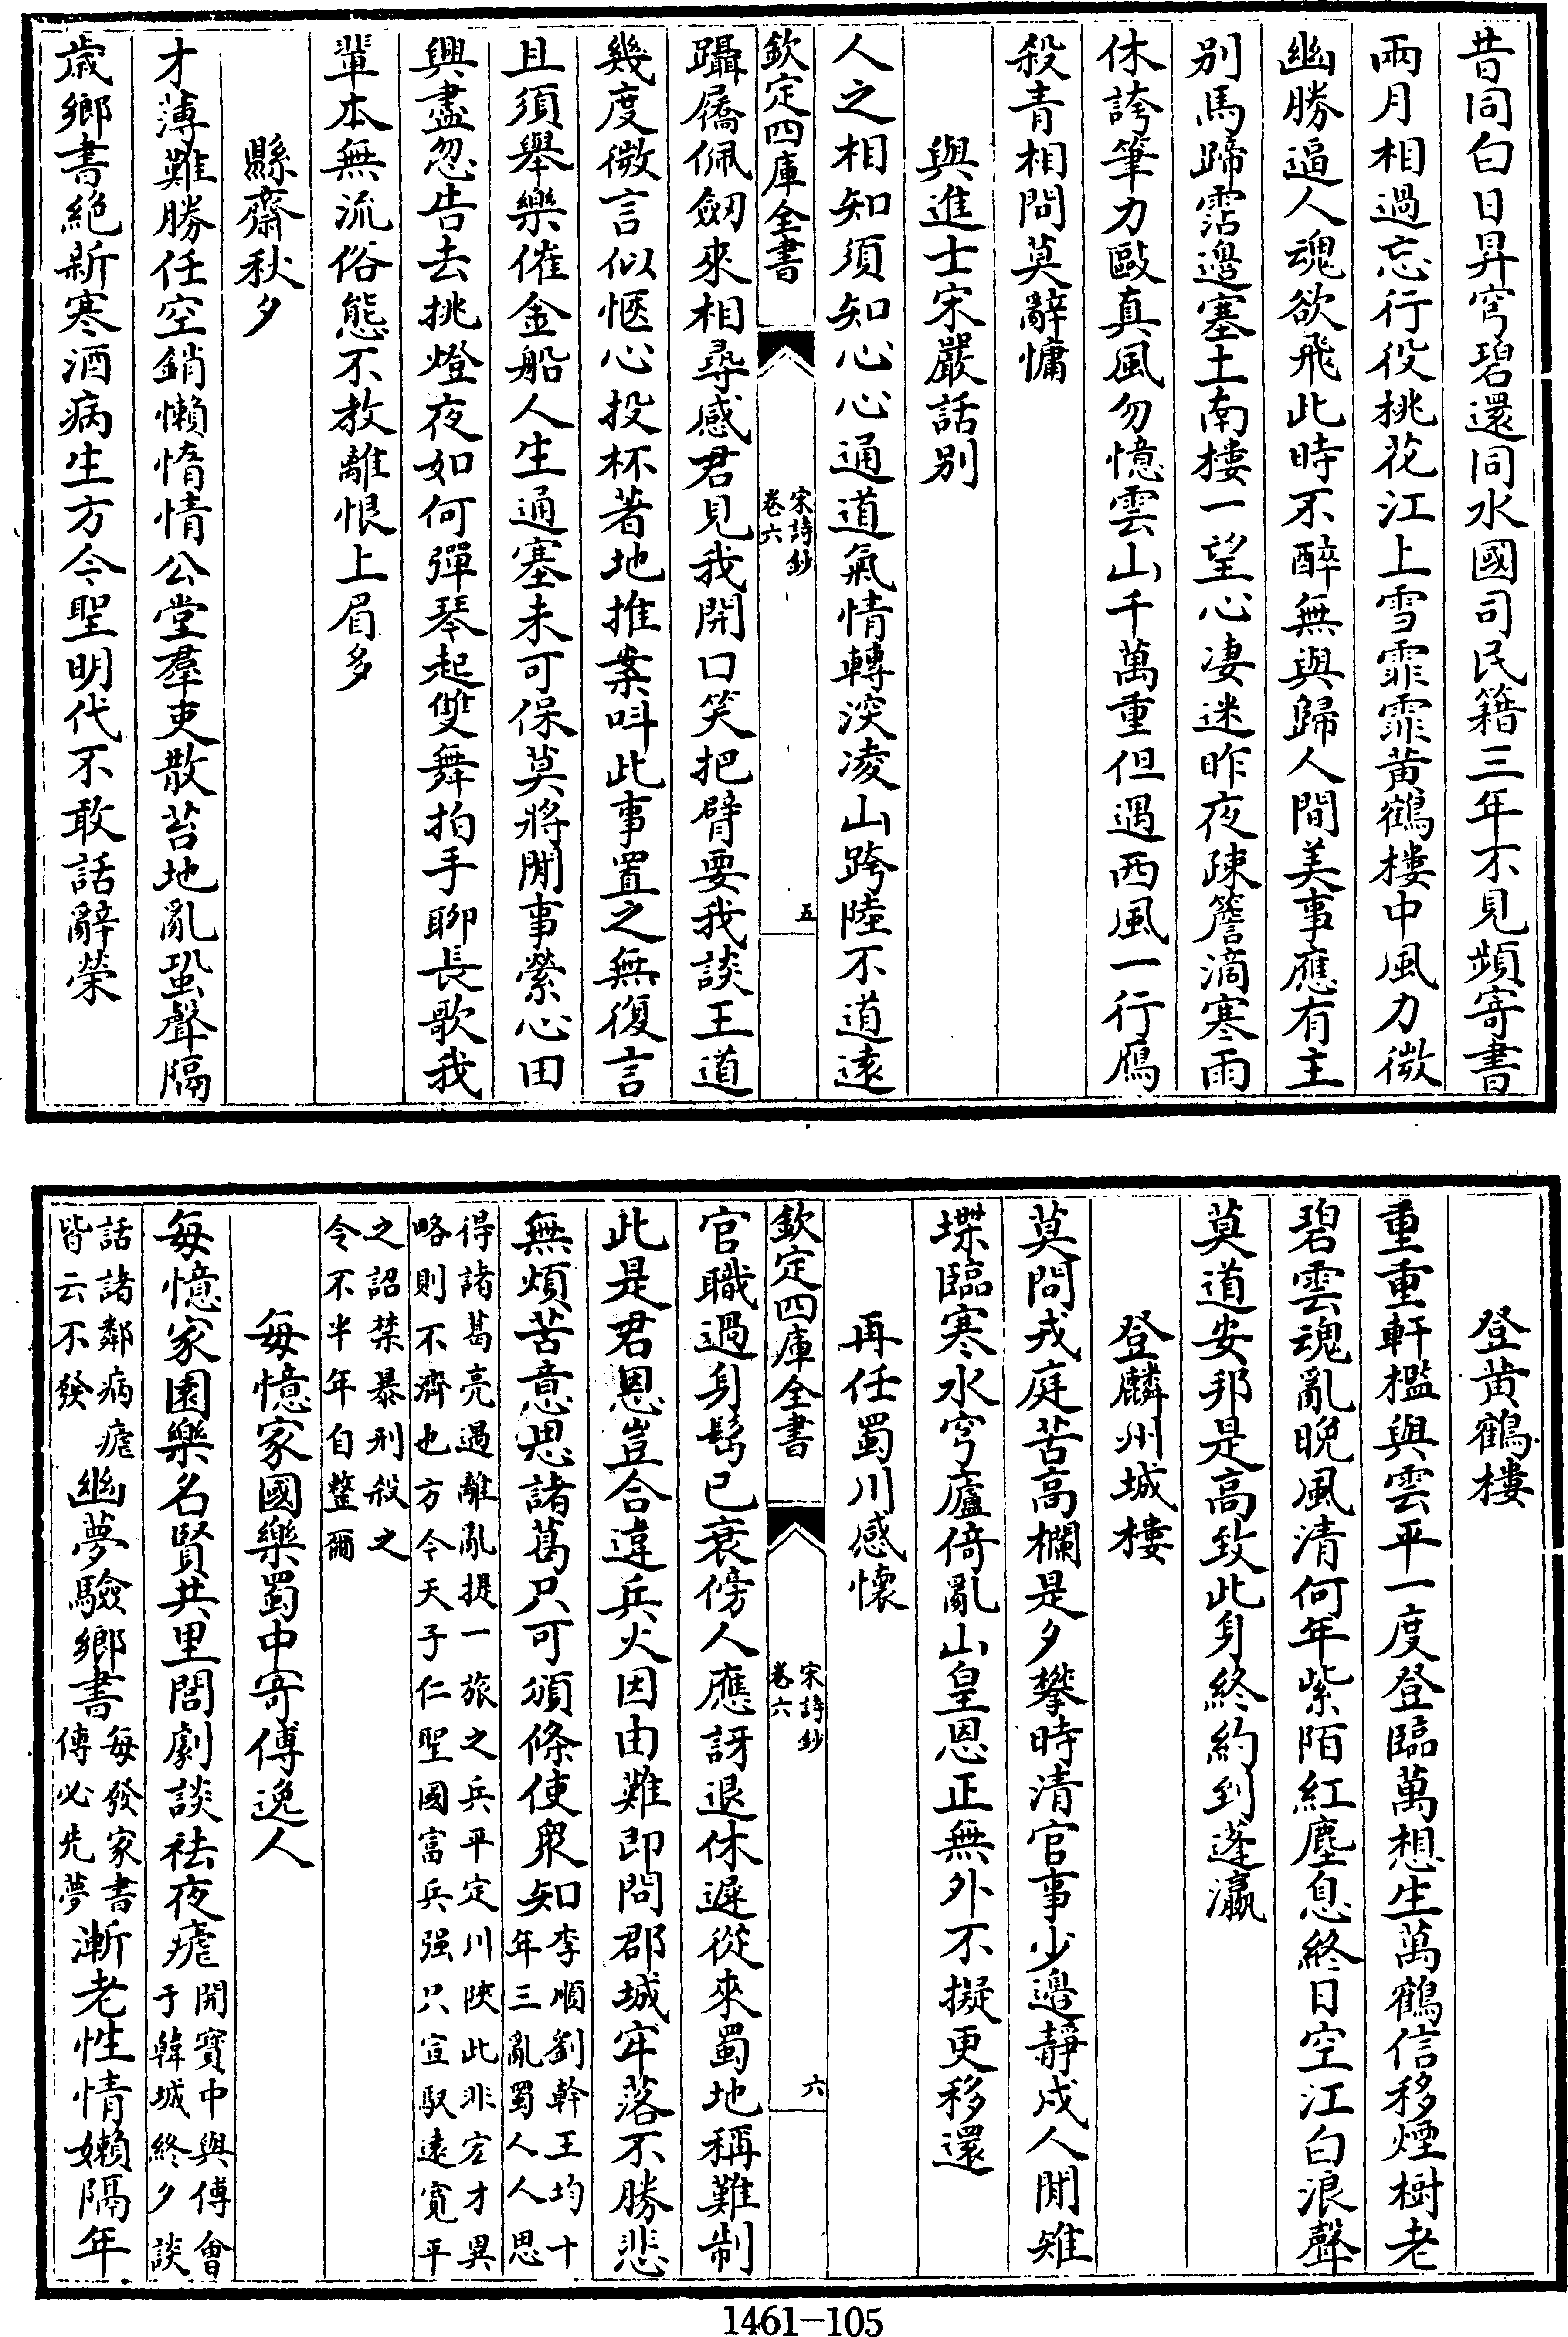 昔同白日昇穹碧還同水國司民籍三年不見頻寄書
兩月相過忘行役桃花江上雪霏霏黃鶴樓中風力微
幽勝逼人魂欲飛此時不醉無與歸人間美事應有主
别馬蹄霑邊塞土南樓一望心凄迷昨夜疎簷滴寒雨
休誇筆力毆真風勿憶雲山千萬重但遇西風一行鴈
殺青相問莫辭慵
與進士宋嚴話别
人之相知須知心心通道氣情轉深凌山跨陸不道遠
欽定四庫全書
宋詩鈔
卷六
五
躡屩佩劒來相尋感君見我開口笑把臂要我談王道
幾度微言似愜心投杯著地推案叫此事置之無復言
且須舉樂催金船人生通塞未可保莫將閒事縈心田
興盡忽告去挑燈夜如何彈琴起雙舞拍手聊長歌我
輩本無流俗態不教離恨上眉多
縣齋秋夕
才薄難勝任空銷懶惰情公堂羣吏散苔地亂蛩聲隔
歲鄉書絶新寒酒病生方今聖明代不敢話辭榮
登黃鶴樓
重重軒檻與雲平一度登臨萬想生萬鶴信移煙樹老
碧雲魂亂晚風清何年紫陌紅塵息終日空江白浪聲
莫道安邦是高致此身終約到蓬瀛
登麟州城樓
莫問戎庭苦高欄是夕攀時清官事少邊静戍人閒雉
堞臨寒水穹廬倚亂山皇恩正無外不擬更移還
再任蜀川感懷
欽定四庫全書
宋詩鈔
卷六
六
官職過身髩已衰傍人應訝退休遲從來蜀地稱難制
此是君恩豈合違兵火因由難即問郡城牢落不勝悲
無煩苦意思諸葛只可頒條使衆知李順劉幹王均十
年三亂蜀人人思
得諸葛亮過離亂提一旅之兵平定川陝此非宏才異
略則不濟也方今天子仁聖國富兵强只宣馭遠寬平
之詔禁暴刑殺之
令不半年自整爾
每憶家國樂蜀中寄傅逸人
每憶家園樂名賢共里閭劇談祛夜瘧開寳中與傅會
于韓城終夕談
話諸鄰病瘧
皆云不發
幽夢驗鄉書每發家書
傳必先夢
漸老性情嬾隔年
1461-105